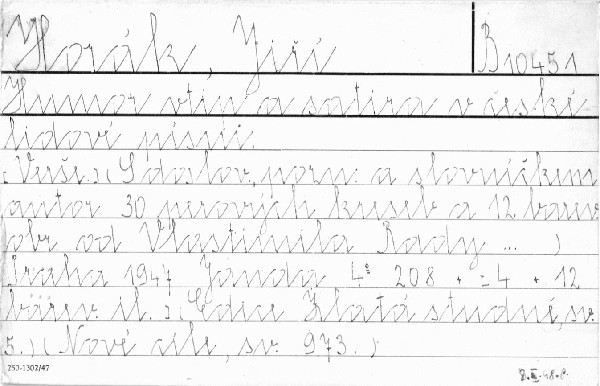 Horák, Jiří B 10451
Humor vtip a satira v české
lidové písni.
(Verše.) (S doslov., pozn. a slovníčkem
autor. 30 perových kreseb a 12 barev.
obr. od Vlastimila Rady ... )
Praha 1947 Janda 4° 208 + -4 + 12
barev. il. :) (Edice Zlatá studně, sv.
5.) (Nové cíle, sv. 973.)
250-1302/47